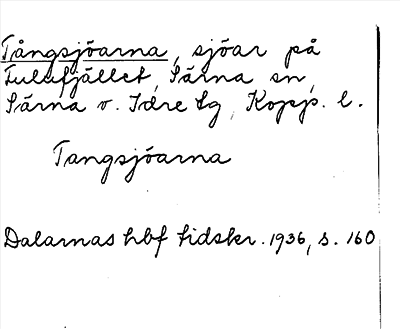 Tångsjöarna, sjöar på
Fulufjället, Särna sn,
Särna o. Idre tg, Kopp. l.
Tangsjöarna
Dalarnas hbf tidskr. 1936, s. 160